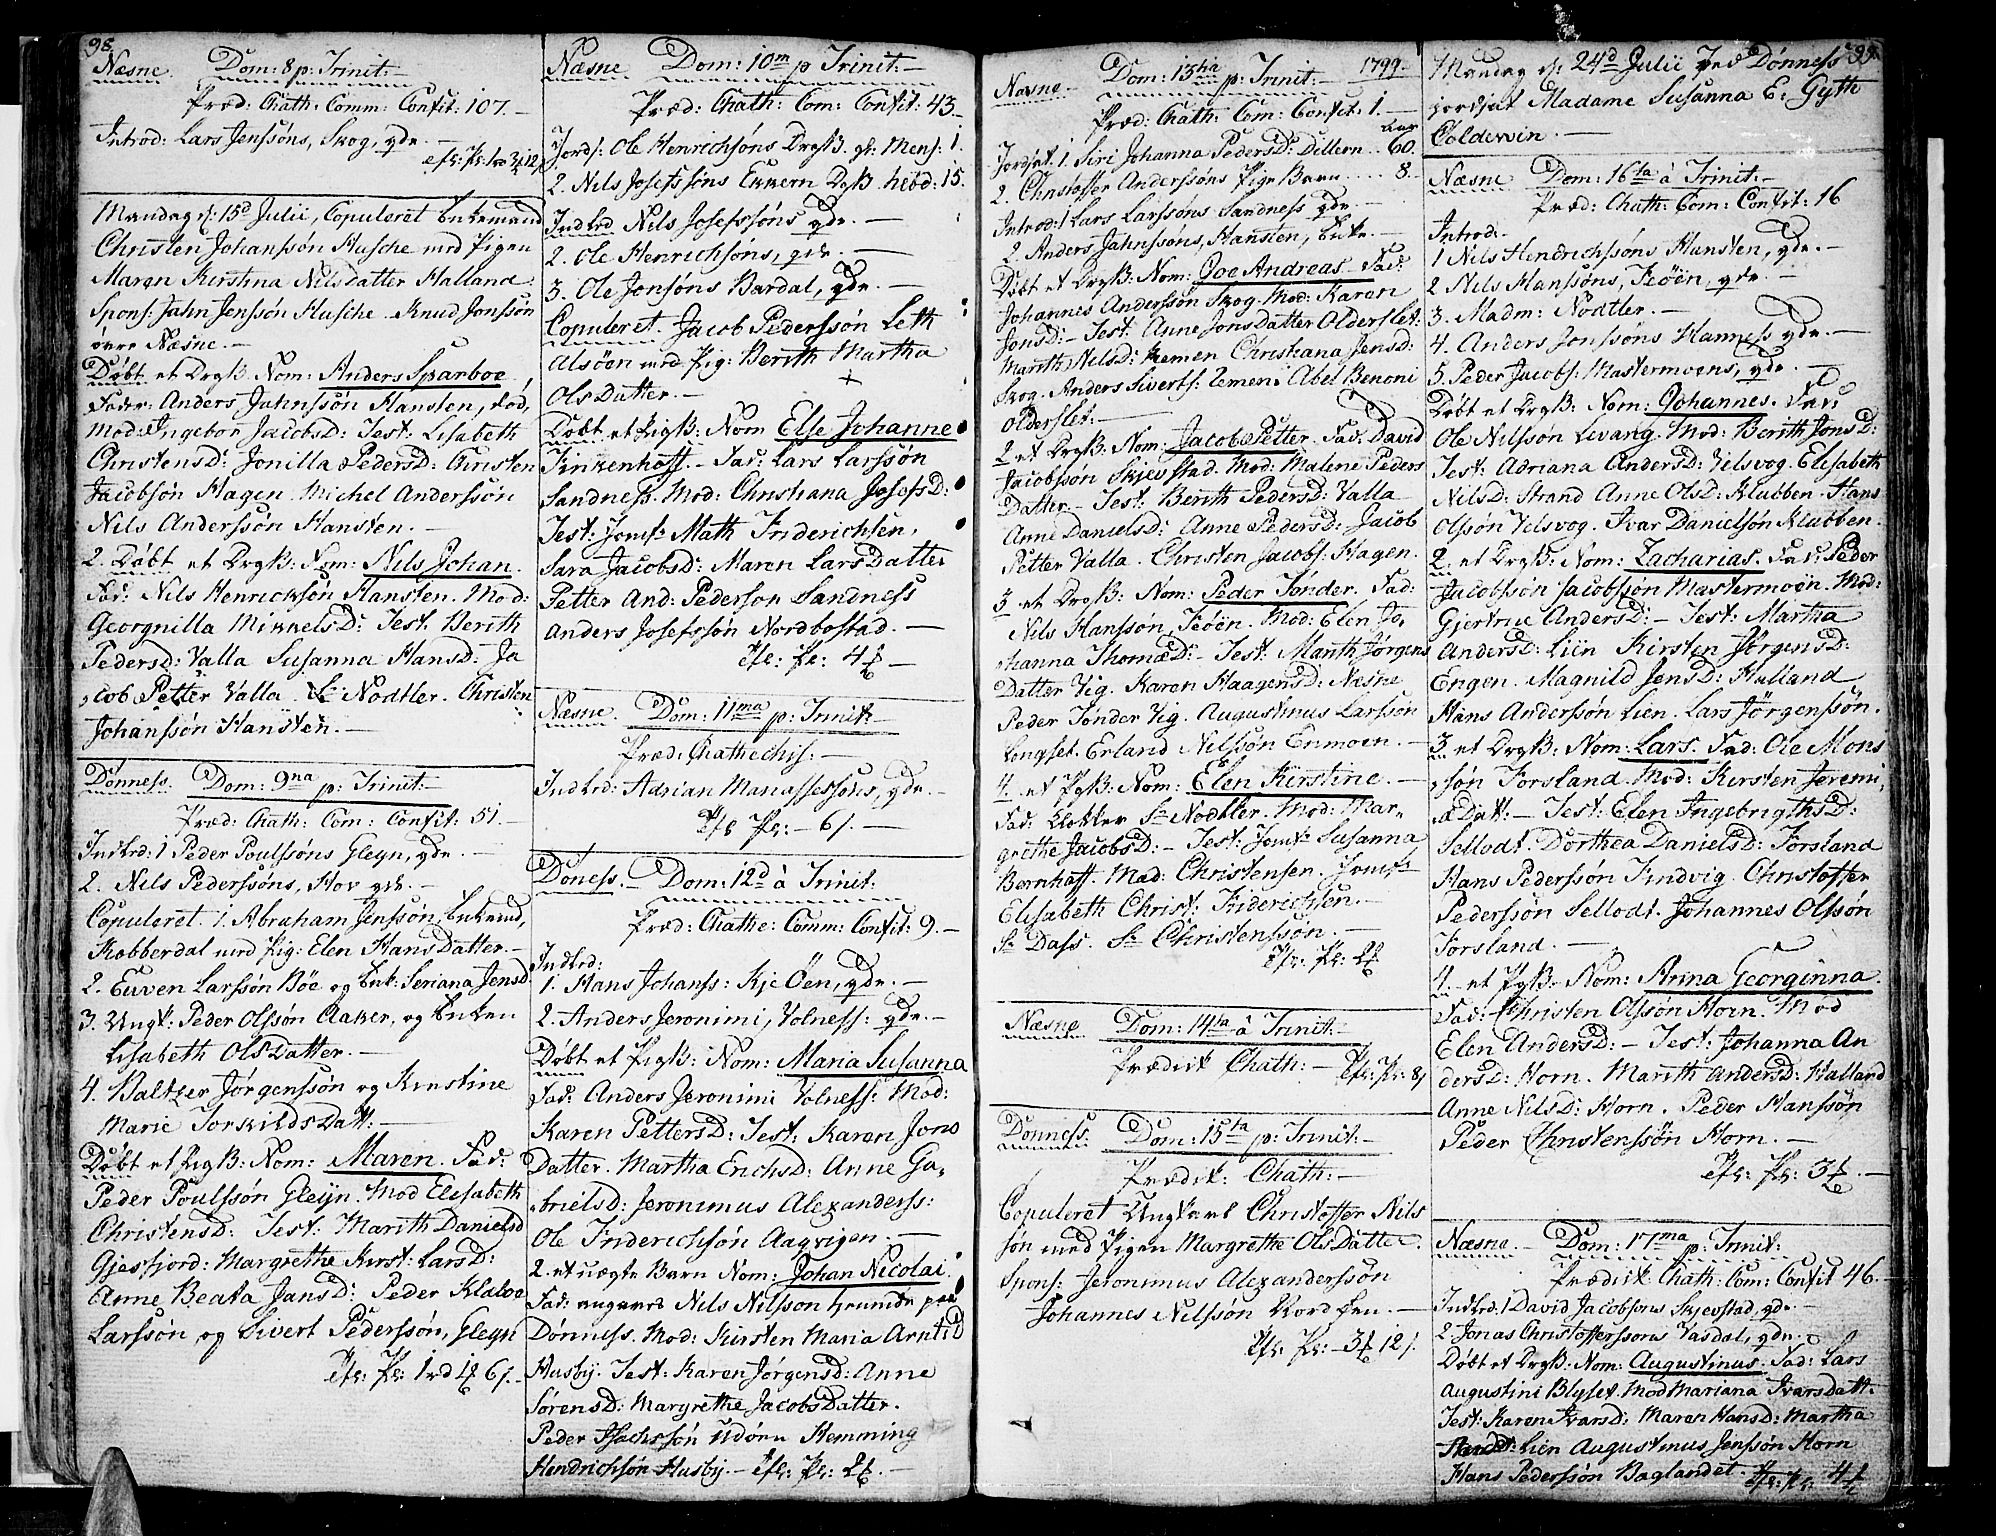 98.
Næsne. Dom: 8 p: Trinit:
Præd: Chath: Comm: Confit: 107.
Introd: Lars Jenssøns, Skog, qde.
Mandag d: 15d Julii, Copuleret Enkemand
Christen Johanssøn Husche med Pigen
Maren Kirstina Nilsdatter Halland.
Spons: Jahn Jenssøn Husche. Knud Jonssøn
øvre Næsne.
Døbt et DrgB. Nom: Anders Sparboe
Fader: Anders Jahnssøn Hansten, død,
Mod: Ingebor Jacobsd: Test: Lisabeth
Christensd: Jonilla Pedersd: Christen
Jacobsøn Hagen. Michel Anderssøn
Nils Anderssøn Hansten.
2. Døbt et DrgB: Nom: Nils Johan.
Fad: Nils Henrickson Hansten. Mod:
Georgnilla Mikkelsd: Test: Berith
Pedersd: Valla Susanna Hansd: Ja
cob Petter Valla. Sr Nodtler. Christen
Johanssøn Hansten.
Dønness. Dom: 9na p: Trinit:
Præd: Chath: Com: Confit: 51.
Indled: 1 Peder Poulssøns Gleyn, qde.
2. Nils Pederssøns, Hov qde.
Copuleret. 1. Abraham Jenssøn, Enkemd,
Kobberdal med Pig: Elen HansDatter.
2. Euven Larssøn Böe og Enk: Seriana Jensd
3. Ungk: Peder Olssøn Aaker, og Enken
Lisabeth OlsDatter.
4. Baltzer Jørgenssøn og Kirstine
Marie TorkildsDatt:
Døbt et PigB: Nom: Maren. Fad:
Peder Poulssøn Gleyn. Mod Elisabeth
Christensd: Test: Marith Danielsd
Gjesfjord: Margrethe Kirst: Larsd:
Anne Beata Jansd: Peder Klaboe
Larssøn og Sivert Pederssøn, Gleyn
Efr: Pr: 1rd 6s.
Næsne Dom: 10m p Trinit:
Præd: Chath: Com: Confit: 43.
Jords: Ole Henrichsøns DrgB. gl: Mens: 1.
2. Nils Josefssøns Ekkern DrgB. hebd: 15.
Indled Nils Josefssøns qde.
2. Ole Henrichsøns, qde.
3. Ole Jonsøns Bardal, qde.
Copuleret. Jacob Pederssøn Leth
Alsöen med Pig: Berith Martha
OlsDatter.
Døbt et PigB: Nom Else Johanne
Finkenhoff. Fad: Lars Larssøn
Sandness. Mod: Christiana Josefsd:
Test: Jomfr: Math Friderichsen,
Sara Jacobsd: Maren LarsDatter
Petter And: Pederson Sandness
Anders Josefssøn Nordbostad.
Efr: Pr: 4
Næsne Dom: 11ma p: Trinit:
Præd: Chathechis:
Indled: Adrian Manassessøns, qde.
Efr Pr: 6s.
Döness. Dom: 12d à Trinit:
Præd: Chathe: Comm: Confit: 9.
Indled:
1. Hans Johanss: Kje Öen, qde.
2. Anders Jeronimi, Volness: qde.
Døbt et PigB: Nom: Maria Susanna
Fad: Anders Jeronimi Volness: Mod:
Karen Pettersd: Test: Karen Jons
Datter. Martha Erichsd: Anne Ga,
brielsd: Jeronimus Alexanderss:
Ole Friderichsøn Aagvigen.
2. et uægte Barn Nom: Johan Nicolai.
Fad: angaves Nils Nilsson hemmde paa
Dønness. Mod: Kirsten Maria Arntsd
Husby. Test: Karen Jørgensd: Anne
Sørensd: Margrethe JacobsDatter.
Peder Isachssøn Udörn Hemming
Hendrichsøn Husby. Efr: Pr: 2
Næsne. Dom: 13ha p: Trinit: 1799.
Præd: Chath: Com: Confit: 1.
Aar
Jordfæt. 1. Siri Johanna Pedersd: Dillern 60.
2. Christoffer Anderssøns Pige Barn 8.
Introd: 1 Lars Larssøns Sandness qde.
2. Anders Jahnssøns, Hansten, Enke.
Døbt et DrgB: Nom: Joe Andreas. Fad:
Johannes Anderssøn Skog. Mod: Karen
Jonsd: Test: Anne JonsDatter Olderslet.
Marith Nilsd: Remen Christiana Jensd:
Skog. Anders Siverts: Remen. Abel Benoni
Olderslet.
2 et DrgB: Nom: Jacob Petter. Fad: David
Jacobssøn Skjevstad. Mod: Malene Peders
Datter. Test: Berith Pedersd: Valla
Anne Danielsd: Anne Pedersd: Jacob
Petter Valla. Christen Jacobs: Hagen.
3 et DrgB: Nom: Peder Tønder. Fad:
Nils Hanssøn, Feöen. Mod: Elen Jo,
hanna Thomæd: Test: Marith Jørgens
Datter Vig. Karen Haagensd: Næsne
Peder Tønder Vig. Augustinus Larssøn
Longset. Erland Nilssøn Enmoen.
4. et PgB: Nom: Elen Kirstine.
Fad: Klokker Sr Nodtler. Mod: Mar,
grethe Jacobsd: Test: Jomfr Susanna
Bernhoff. Mad: Christensen. Jomfr
Elisabeth Christ: Friderichsen.
Sr Dass. Sr Christenssøn.
Efr: Pr: 2
Næsne Dom: 14ta à Trinit:
Prædik Chath: Efr: Pr: 8s
Dønness. Dom: 15ta p: Trinit:
Prædik: Chath:
Copuleret Ungkarl Christoffer Nils
søn med Pigen Margrethe OlsDatter.
Spons: Jeronimus Alexanderssøn
Johannes Nilssøn Nordfen.
Efr: Pr: 3 12s.
99.
Mandag d: 24d Julii ved Dønness
jordfæt Madame Susanna E: Gyth
Coldevin.
Næsne Dom: 16ta à Trinit:
Præd: Chath: Com: Confit: 16
Introd:
1 Nils Hendrichssøns Hansten, qde.
2 Nils Hanssøns, Feöen, qde.
3. Madm: Nodtler.
4. Anders Jonssøns Hamness qde.
5. Peder Jacobs: Mastermoens, qde.
Døbt et DrgB: Nom: Johannes. Fad:
Ole Nilssøn Levang. Mod: Berith Jonsd:
Test: Adriana Andersd: Velsvog. Elisabeth
Nilsd: Strand Anne Olsd: Klubben. Hans
Olssøn Velsvog. Ivar Danielsøn Klubben.
2 et DrgB: Nom: Zacharias. Fad: Peder
Jacobssøn Jacobssøn Mastermoen. Mod:
Gjertrue Andersd: Test: Martha
Andersd: Liin Kirsten Jørgensd:
Engen. Magnild Jensd: Halland
Hans Anderssøn Lien. Lars Jørgenssøn.
3 et DrgB: Nom: Lars. Fad: Ole Mons
søn Forsland. Mod: Kirsten Jeremi,
æDatt: Test: Elen Ingebrigthsd:
Sellodt. Dorthea Danielsd: Forsland
Hans Pederssøn Findvig. Christoffer
Pederssøn Sellodt. Johannes Olssøn
Forsland.
4. et PgB. Nom: Anna Georginna.
Fad: Christen Olssøn Horn. Mod
Elen Andersd: Test: Johanna An
dersd: Horn. Marith Andersd: Halland
Anne Nilsd: Horn. Peder Hanssøn
Peder Christenssøn Horn.
Efr: Pr: 3
Næsne. Dom: 17ma p: Trinit:
Prædik: Chath: Com: Confit 46.
Indled: 1 David Jacobsøns Skjevstad, qde.
2 Jonas Christofferssøns Vasdal, qde.
Døbt et DrgB: Nom: Augustinus. Fad: Lars
Augustini Blyset. Mod Mariana IvarsDatt:
Test: Karen Ivarsd: Maren Hansd: Martha
Lien Augustinus Jenssøn Horn
Hans Pederssøn Baglandet. Efr: Pr 4